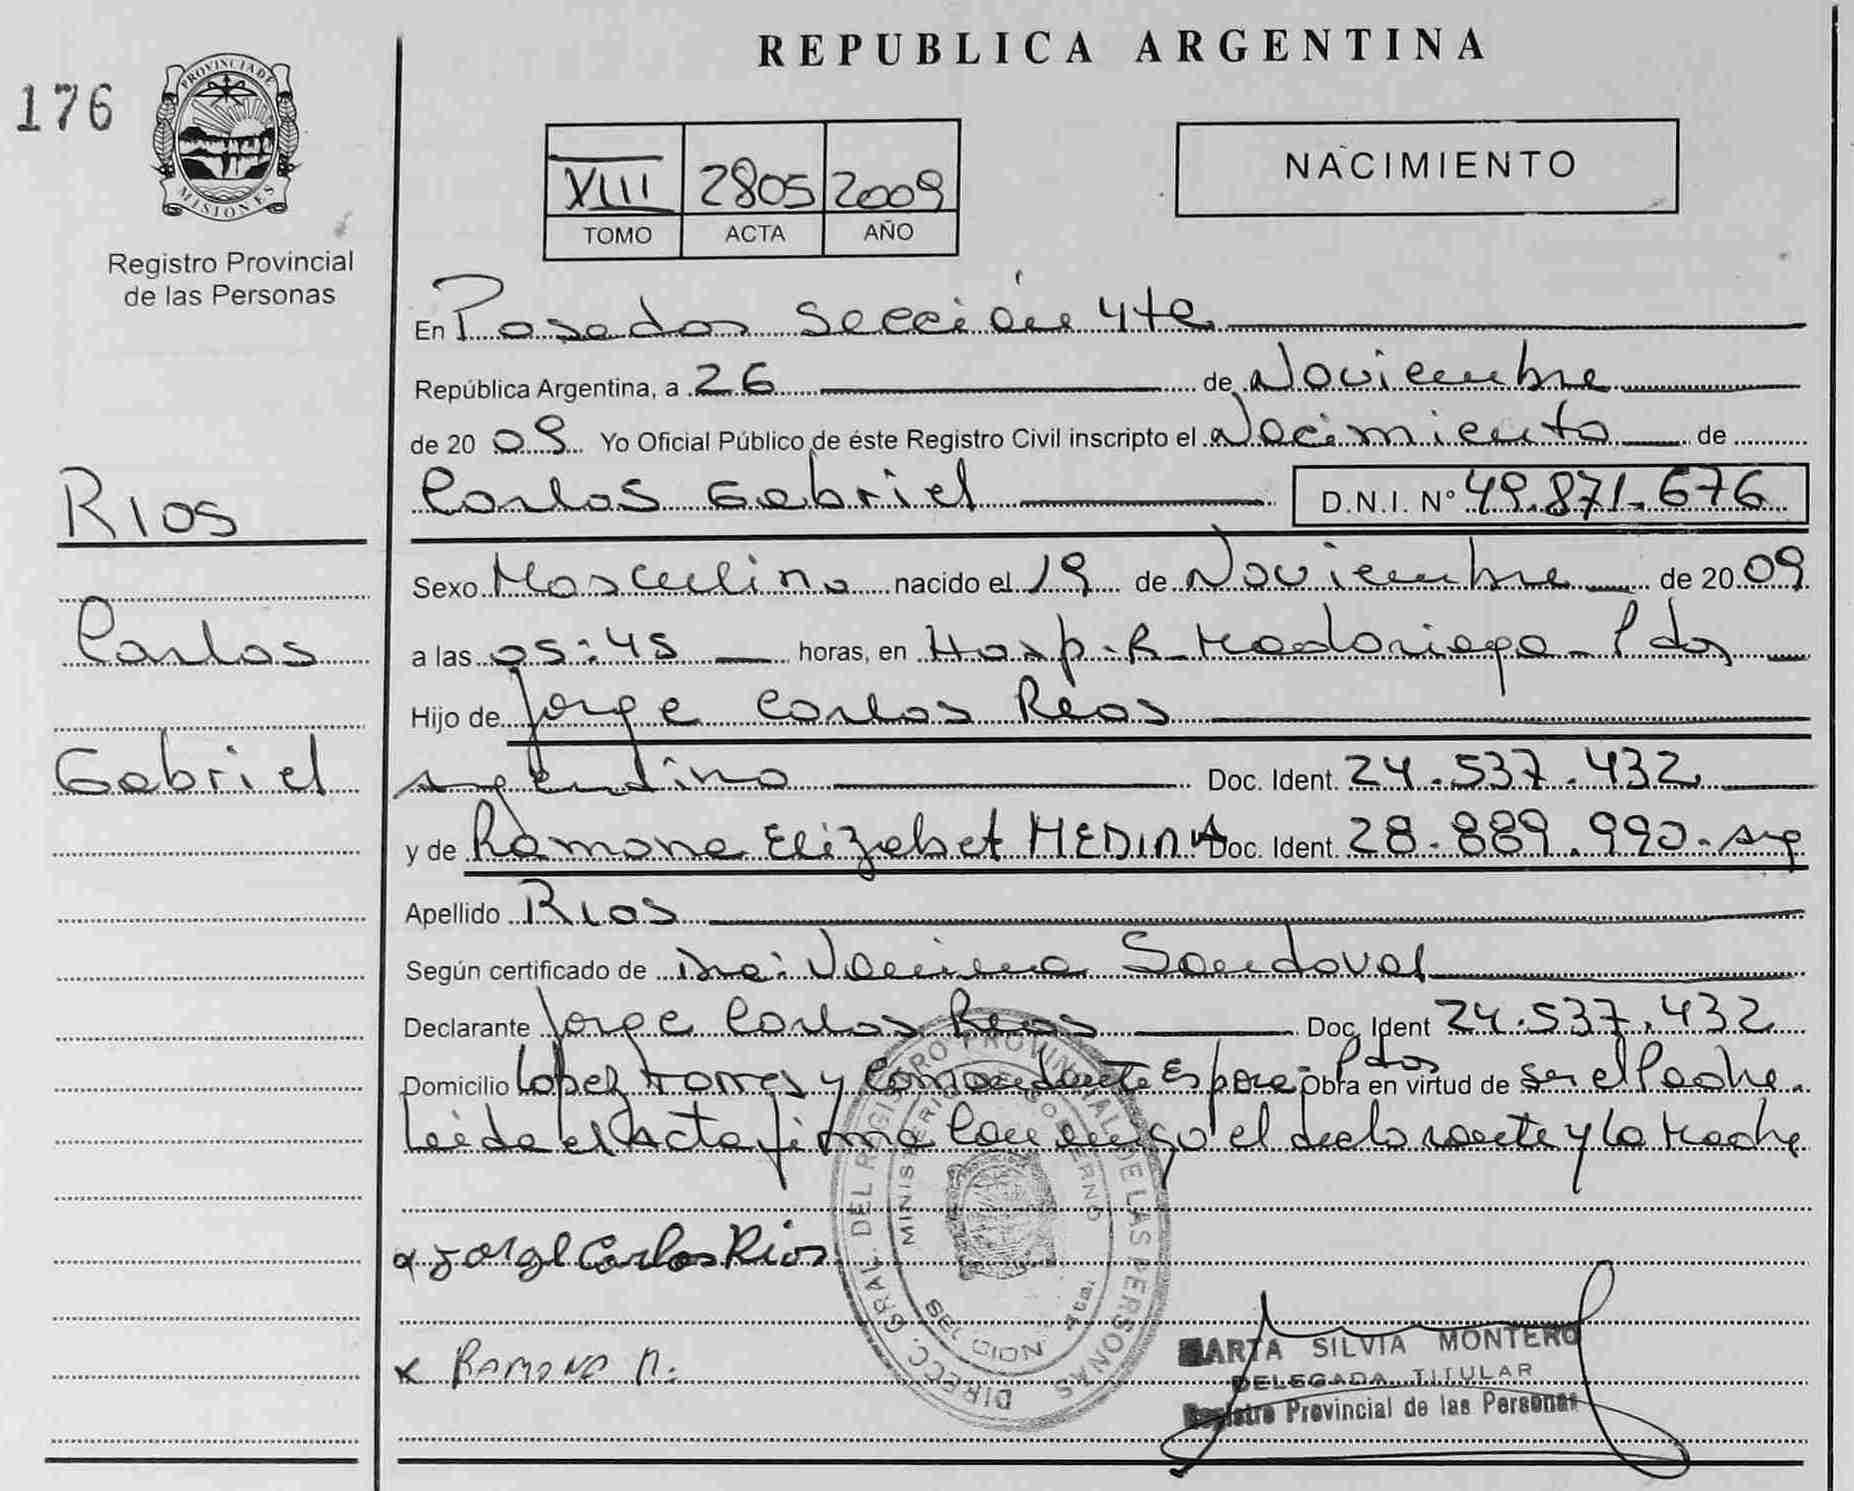 REPUBLICA ARGENTINA
176
PROVINCIA DE
MISIONES
Registro Provincial
de las Personas
XIII 2805 2009
TOMO ACTA AÑO
NACIMIENTO
En Posadas Sección 4ta
República Argentina, a 26 de Noviembre
de 2009 Yo Oficial Público de éste Registro Civil inscripto el Nacimiento de
Carlos Gabriel D.N.I. Nº 49.871.676
Rios
Carlos
Gabriel
Sexo Masculino nacido el 19 de Noviembre de 2009
a las 05:45 horas, en Hosp. R. Madariaga - Pdas
Hijo de Jorge Carlos Rios
argentino Doc. Ident. 24.537.432
y de Ramona Elizabet MEDINA Doc. Ident. 28.889.990. arg
Apellido Rios
Según certificado de Vanina Sandoval
Declarante Jorge Carlos Rios Doc. Ident 24.537.432
Domicilio Lopez Torres y Comandante Espora Pdas Obra en virtud de ser el Padre.
Leída el Acta firma conmigo el declarante y la Madre
x Jorge Carlos Rios
x Ramona M.
DIRECC. GRAL. DEL REGISTRO PROVINCIAL DE LAS PERSONAS
MINISTERIO DE GOBIERNO
4ta.
MARTA SILVIA MONTERO
DELEGADA TITULAR
Registro Provincial de las Personas